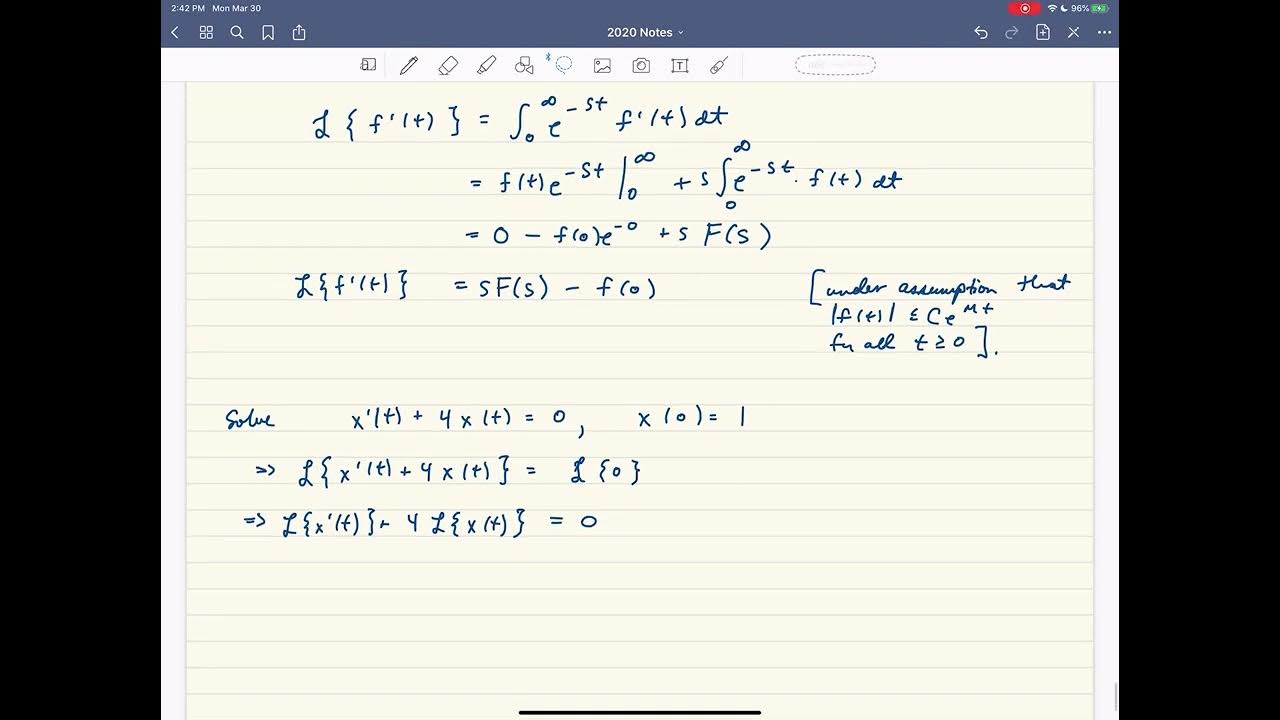 2:42 PM Mon Mar 30 96%
2020 Notes
ℒ{f'(t)} = ∫₀^∞ e^{-st} f'(t) dt
= f(t)e^{-st} |₀^∞ + s∫₀^∞ e^{-st} · f(t) dt
= 0 - f(0)e^{-0} + s F(s)
ℒ{f'(t)} = sF(s) - f(0)
[under assumption that
|f(t)| ≤ Ce^{Mt}
for all t ≥ 0].
Solve x'(t) + 4x(t) = 0, x(0) = 1
=> ℒ{x'(t) + 4x(t)} = ℒ{0}
=> ℒ{x'(t)} + 4ℒ{x(t)} = 0